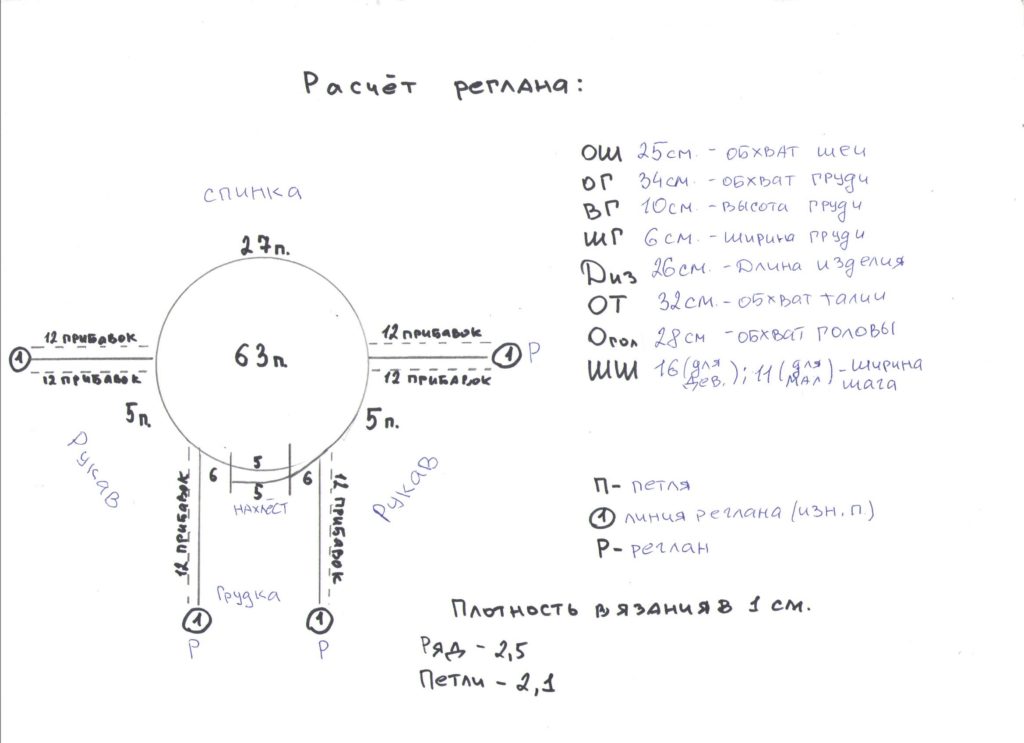 Расчёт реглана:
ОШ 25см. - обхват шеи
ОГ 34см. - обхват груди
ВГ 10см. - высота груди
ШГ 6см. - ширина груди
Диз 26см. - Длина изделия
ОТ 32см. - обхват талии
Огол 28см - обхват головы
ШШ 16 (для дев.); 11 (для мал) - ширина шага
спинка
27п.
12 прибавок
12 прибавок
1
63п.
1 Р
12 прибавок
12 прибавок
5п.
5п.
Рукав
Рукав
12 прибавок
6
5
5
6
нахлёст
12 прибавок
Грудка
1
1
Р
Р
П - петля
1 линия реглана (изн.п.)
Р - реглан
Плотность вязания в 1 см.
Ряд - 2,5
Петли - 2,1